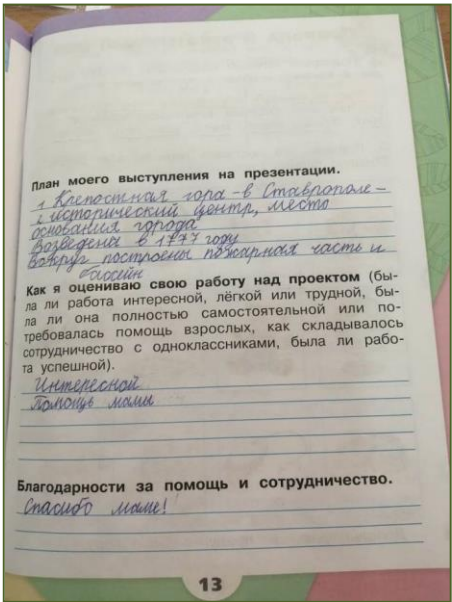 План моего выступления на презентации.
1 Крепостная гора - в Ставрополе -
2 исторический центр, место
основания города
Возведена в 1777 году
Вокруг построены пожарная часть и
басейн
Как я оцениваю свою работу над проектом (бы-
ла ли работа интересной, лёгкой или трудной, бы-
ла ли она полностью самостоятельной или по-
требовалась помощь взрослых, как складывалось
сотрудничество с одноклассниками, была ли рабо-
та успешной).
Интересной
Помощь мамы
Благодарности за помощь и сотрудничество.
Спасибо маме!
13